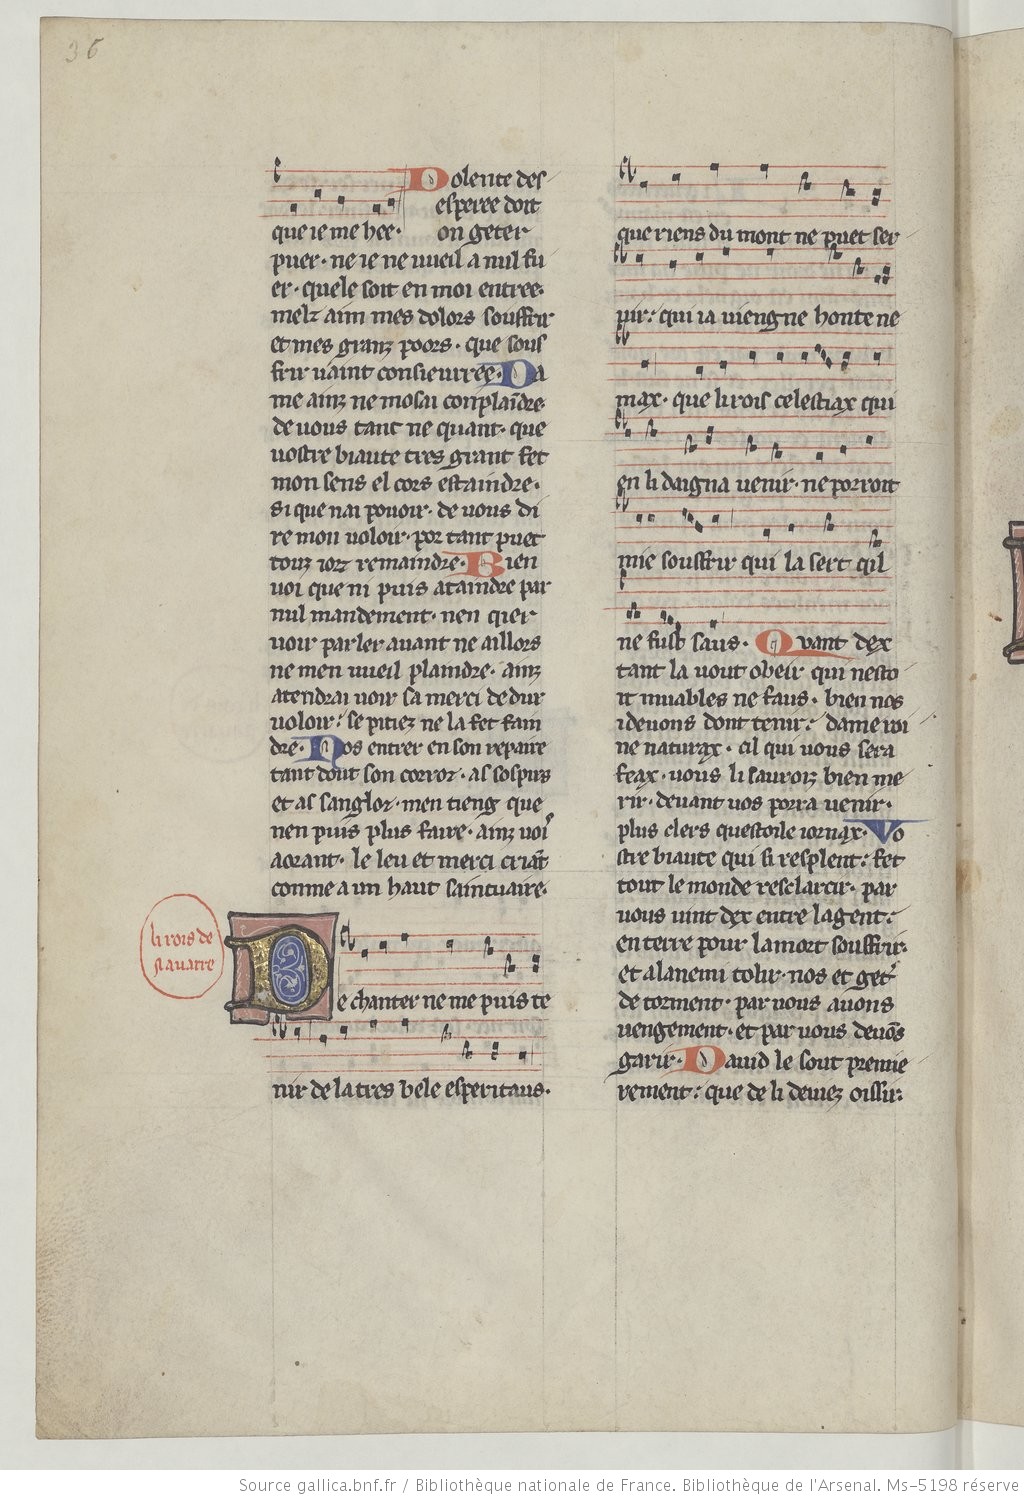 36
Dolente des
esperee doit
que ie me hee· on geter
puer· ne ie ne vueil a nul fu
er· quele soit en moi entree·
melz aim mes dolors souffrir
et mes granz poors· que sous
frir vaint consieurree· Da
me ainz ne mosai conplaīdre·
de vous tant ne quant· que
vostre biaute tres grant fet
mon sens el cors estaindre·
si que nai pouoir· de vous di
re mon voloir· por tant puet
touz iorz remaindre· Bien
voi que ni puis ataindre par
nul mandement· nen qier
voir parler auant ne aillors
ne men vueil plaindre· ainz
atendrai voir sa merci de dur
voloir: se pitiez ne la fet fain
dre· Nos entrer en son repaire
tant dout son corroz· as sospirs
et as sangloz· men tieng que
nen puis plus faire· ainz voi
aorant· le leu et merci criāt
comme a un haut saintuaire·
li rois de
nauarre
De chanter ne me puis te
nir de la tres bele esperitaus·
que riens du mont ne puet ser
uir: qui ia viengne honte ne
max· que li rois celestiax qui
en li daigna venir· ne porroit
mie souffrir qui la sert qil
ne fust saus· Quant dex
tant la vout obeir qui nesto
it muables ne faus· bien nos
i deuons dont tenir: dame roi
ne naturax· cil qui vous sera
feax· vous li sauroiz bien me
rir· deuant vos porra venir·
plus clers questoile iornax· Vo
stre biaute qui si resplent: fet
tout le monde resclarcir· par
vous vint dex entre la gent:
en terre pour la mort souffrir·
et a lanemi tolir· nos et get̾
de torment· par vous auons
vengement· et par vous deuōs
garir· Dauid le sout premie
rement: que de li deuiez oissir:
Source gallica.bnf.fr / Bibliothèque nationale de France. Bibliothèque de l'Arsenal. Ms-5198 réserve